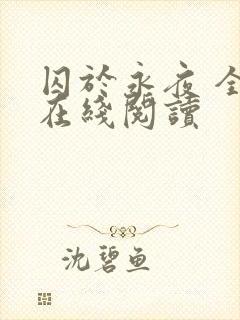 囚於永夜 全
在綫閱讀
沈碧鱼